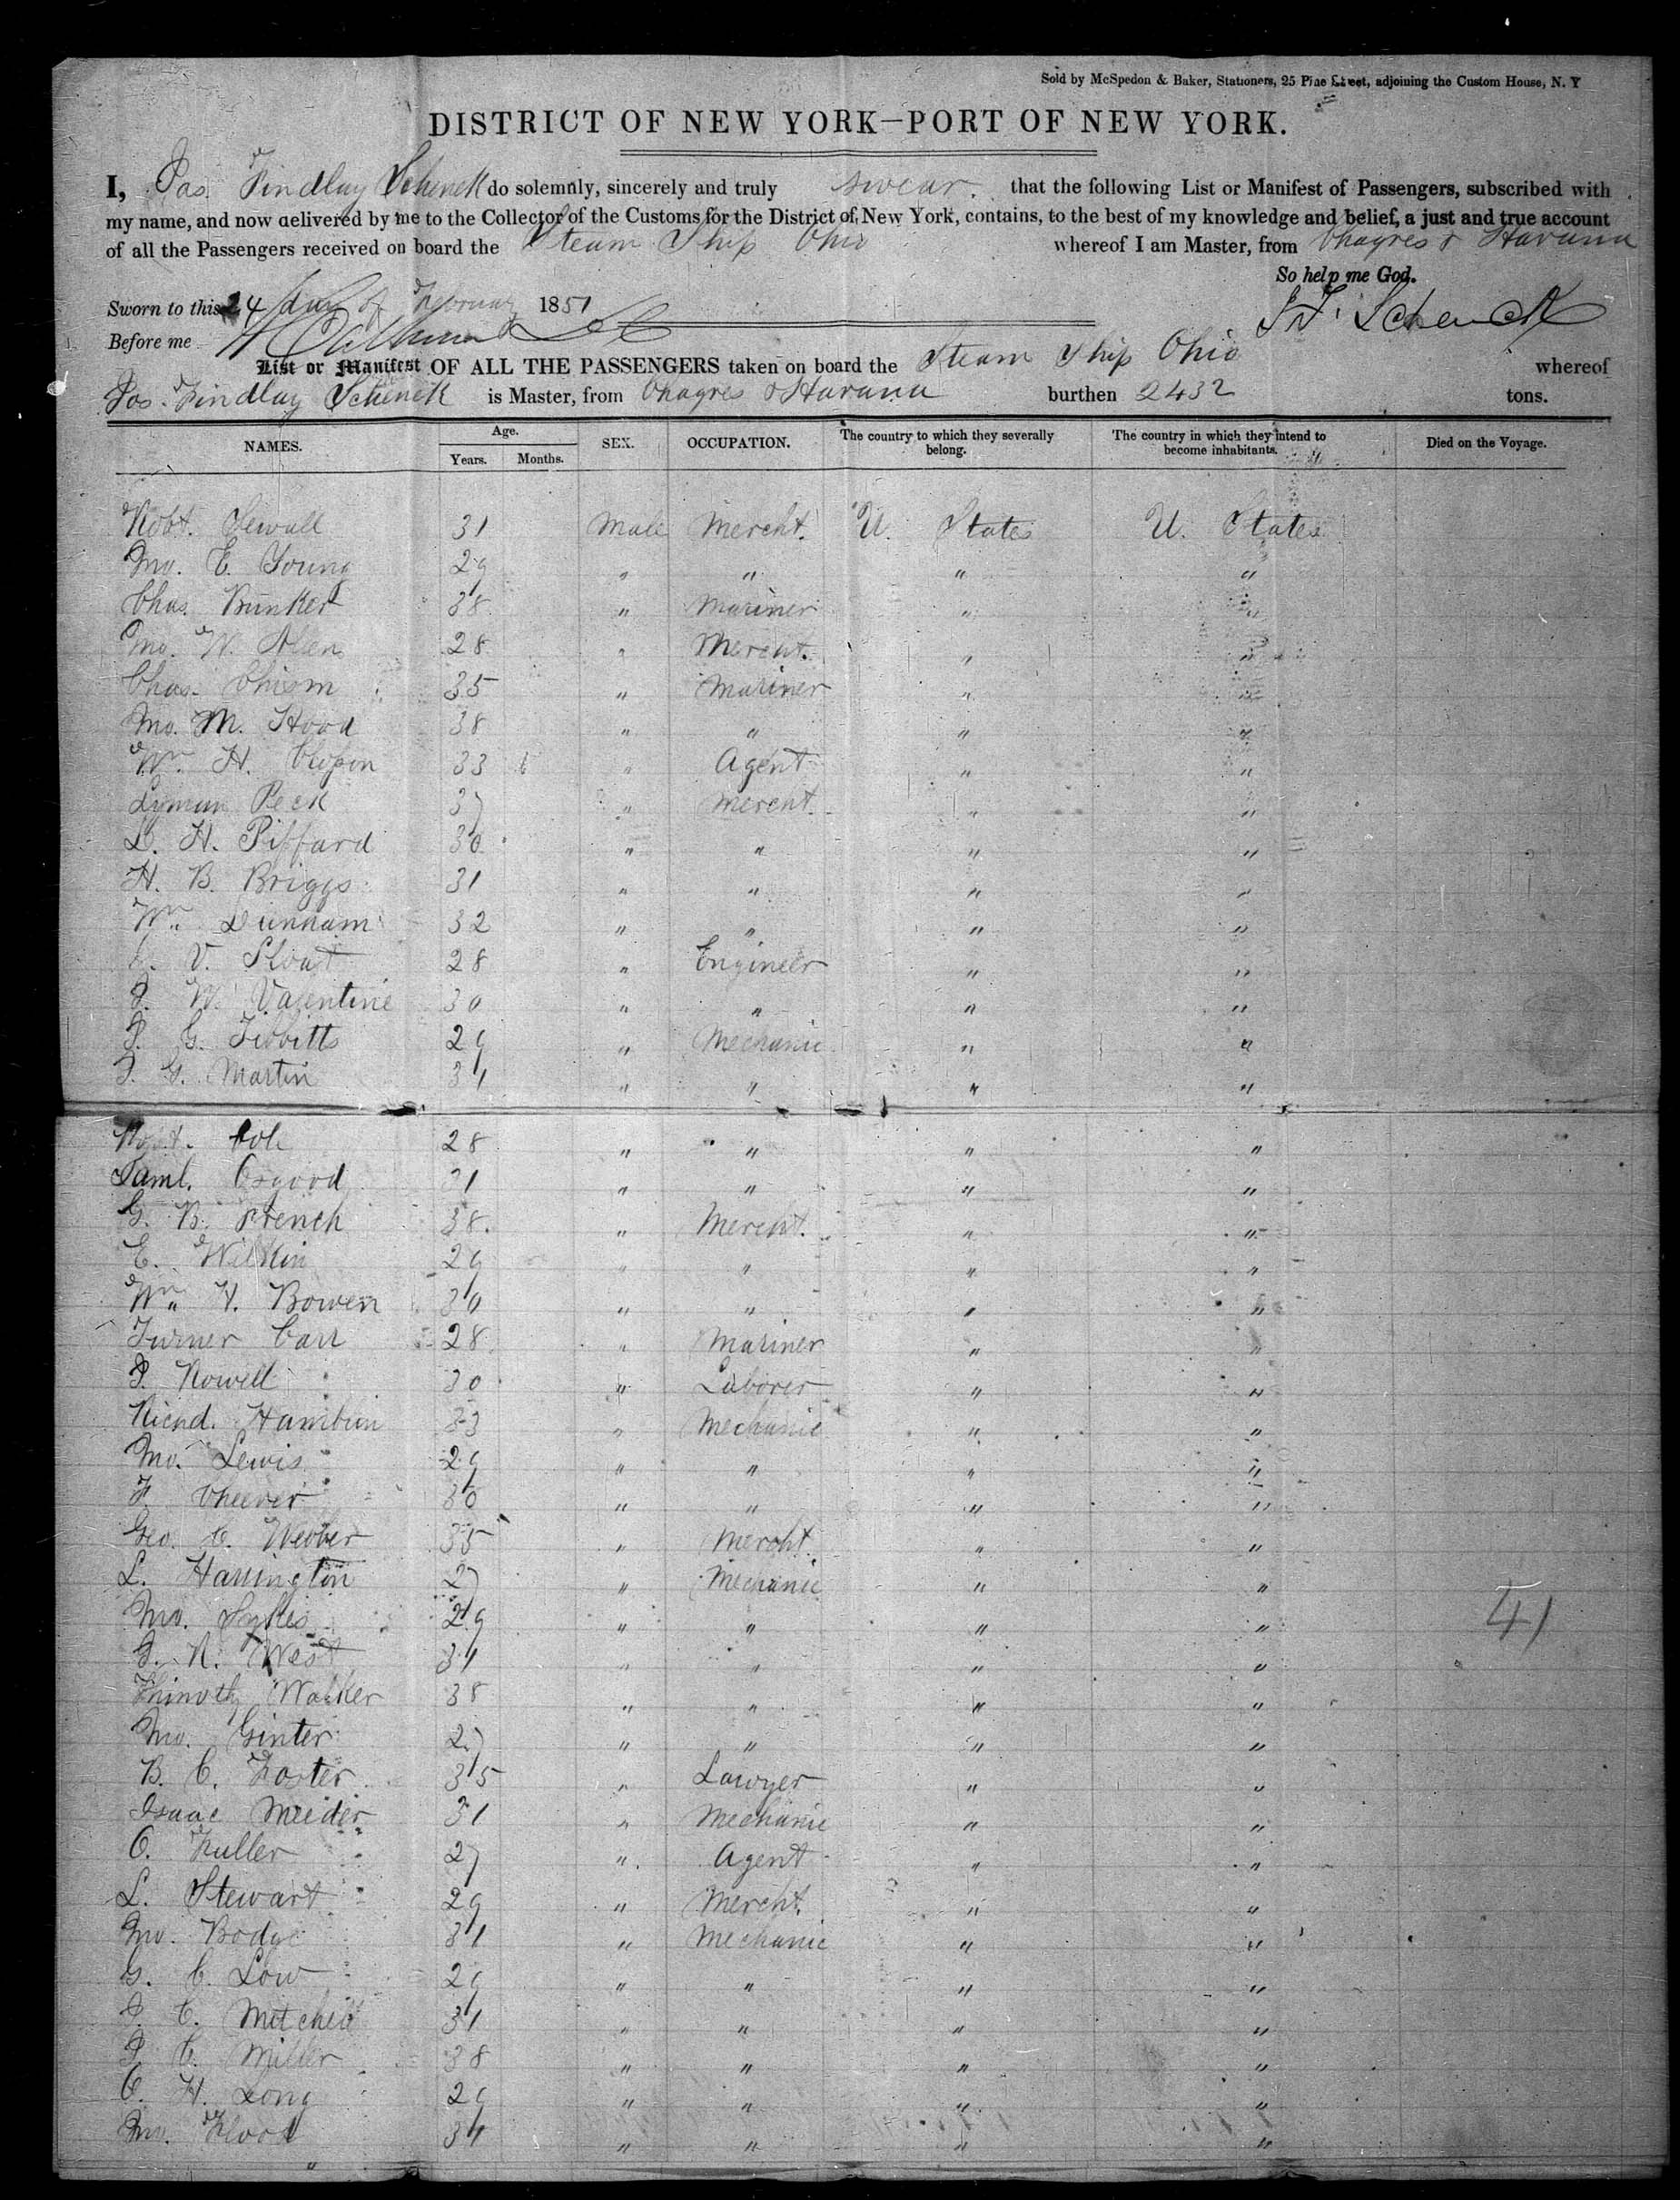 Sold by McSpedon & Baker, Stationers, 25 Pine Street, adjoining the Custom House, N. Y
DISTRICT OF NEW YORK—PORT OF NEW YORK.
I, Jas. Findlay Schenck do solemnly, sincerely and truly swear that the following List or Manifest of Passengers, subscribed with
my name, and now delivered by me to the Collector of the Customs for the District of New York, contains, to the best of my knowledge and belief, a just and true account
of all the Passengers received on board the Steam Ship Ohio whereof I am Master, from Chagres & Havana
So help me God.
Sworn to this 24 day of February 1851 J F Schenck
Before me
List or Manifest OF ALL THE PASSENGERS taken on board the Steam Ship Ohio whereof
Jas. Findlay Schenck is Master, from Chagres & Havana burthen 2432 tons.
NAMES. Age. Years. Months. SEX. OCCUPATION. The country to which they severally belong. The country in which they intend to become inhabitants. Died on the Voyage.
Robt. Sewall 31 Male Mercht. U. States U. States
Jno. E. Young 29 " " " "
Chas. Bunker 38 " Mariner " "
Jno. W. Allen 28 " Mercht. " "
Chas. Chism 35 " Mariner " "
Jno. M. Hood 38 " " " "
Wm. H. 33 " Agent " "
Lyman Peck 37 " Mercht. " "
D. H. Piffard 30 " " " "
H. B. Briggs 31 " " " "
Wm. Dunham 32 " " " "
V. Sloat 28 " Engineer " "
J. W. Valentine 30 " " " "
J. G. Tibbitts 29 " Mechanic " "
J. G. Martin 31 " " " "
Robt. Cole 28 " " " "
Saml. Osgood 31 " " " "
G. B. French 38. " Mercht. " "
E. Wilkin 29 " " " "
Wm. H. Bowen 30 " " " "
Turner Carr 28 " Mariner " "
J. Rowell 30 " Laborer " "
Richd. Hamblin 33 " Mechanic " "
Jno. Lewis 29 " " " "
F. Cheever 30 " " " "
Geo. C. Webber 35 " Mercht " "
L. Harrington 27 " Mechanic " "
Jno. Sykes 29 " " " " 41
J. R. West 31 " " " "
Thimothy Walker 38 " " " "
Jno. Ginter 27 " " " "
B. C. Foster 35 " Lawyer " "
Isaac Meider 31 " Mechanic " "
O. Fuller 27 " Agent " "
L. Stewart 29 " Mercht. " "
Jno. Bodge 31 " Mechanic " "
G. C. Low 29 " " " "
J. C. Mitchell 31 " " " "
J. C. Miller 38 " " " "
O. H. Long 29 " " " "
Jno. Flood 31 " " " "